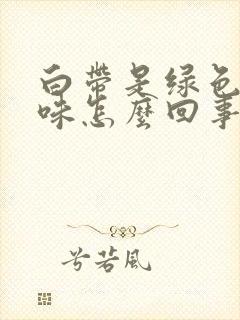 白帶是绿色
味怎麼回事
兮若風